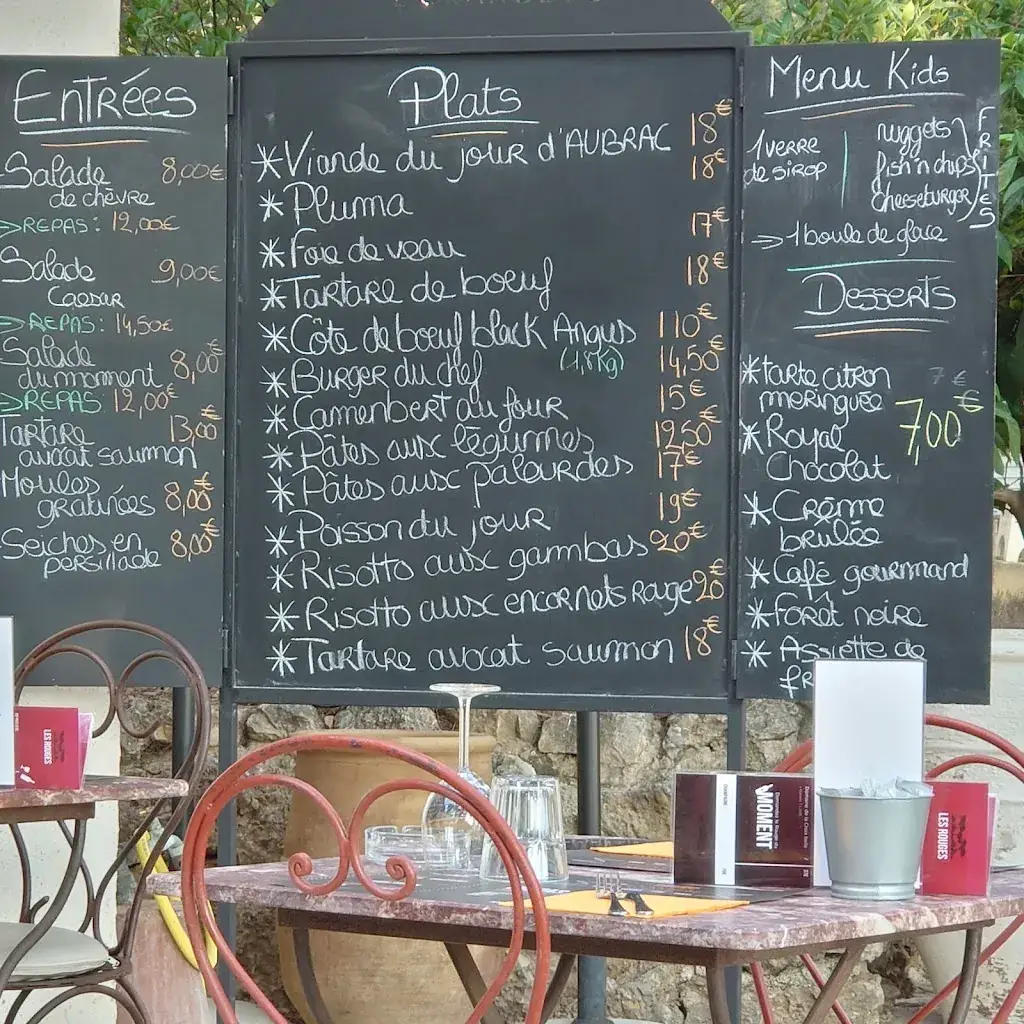 EnTRÉES
Salade 8,00€
de chèvre
⇒REPAS: 12,00€
Salade 9,00€
CAESAR
⇒REPAS: 14,50€
Salade 8,00€
du momment
⇒REPAS 12,00€
Tartare 13,00€
avocat saumon
Moules
gratinées 8,00€
Seiches en 8,00€
persillade
Plats
*Viande du jour d'AUBRAC 18€
18€
*Pluma
17€
*Foie de veau
*Tartare de boeuf 18€
*Côte de boeuf black Angus 110€
(1,8kg) 14,50€
*Burger du chef
15€
*Camenbert au four
*Pâtes aux légumes 12,50€
*Pâtes aux palourdes 17€
19€
*Poisson du jour
*Risotto aux gambas 20€
*Risotto aux encornets Rouge 20€
*Tartare avocat saumon 18€
Menu Kids
1 VERRE
de siROP
nuggets
fish'n chips
cheeseburger
FRITES
⇒1 boule de glace
Desserts
*tarte citron 7€
meringuée 7,00€
*Royal
Chocolat
*Crème
brûlée
*Café gourmand
*Forêt noire
*Assiette de
LES ROUGES
MOMENT
LES ROUGES